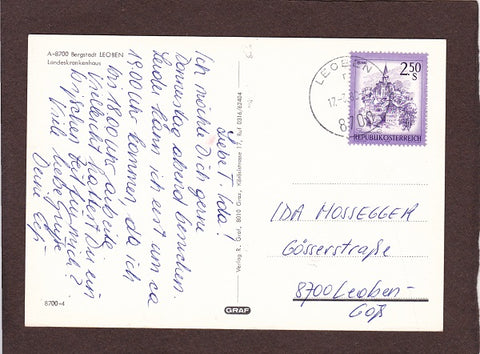 A-8700 Bergstadt LEOBEN
Landeskrankenhaus
Liebe T. Ida!
Ich möchte Dich gerne
Donnerstag abend besuchen.
Leider kann ich erst um ca
19.00 Uhr kommen, da ich
bis 18.00 Uhr arbeite.
Vielleicht hättest Du ein
bißchen Zeit für mich?
Viele liebe Grüße
Deine
8700-4
Verlag R. Graf, 8010 Graz, Körblergasse 17, Ruf 0316/62404
GRAF
LEOBEN
8700
2.50
S
REPUBLIK ÖSTERREICH
IDA MOSSEGGER
Gösserstraße
8700 Leoben-
Göß